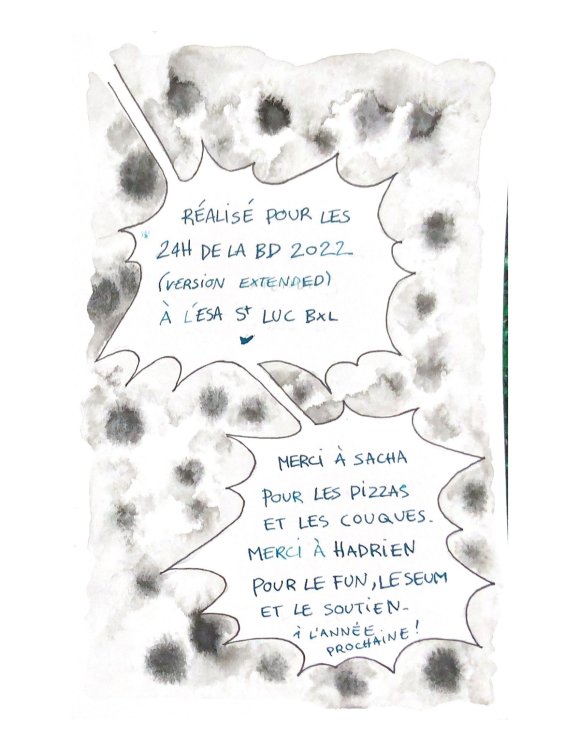 RÉALISÉ POUR LES
24H DE LA BD 2022
(VERSION EXTENDED)
À L'ESA St LUC BXL
MERCI À SACHA
POUR LES PIZZAS
ET LES COUQUES.
MERCI À HADRIEN
POUR LE FUN, LE SEUM
ET LE SOUTIEN.
À L'ANNÉE
PROCHAINE !